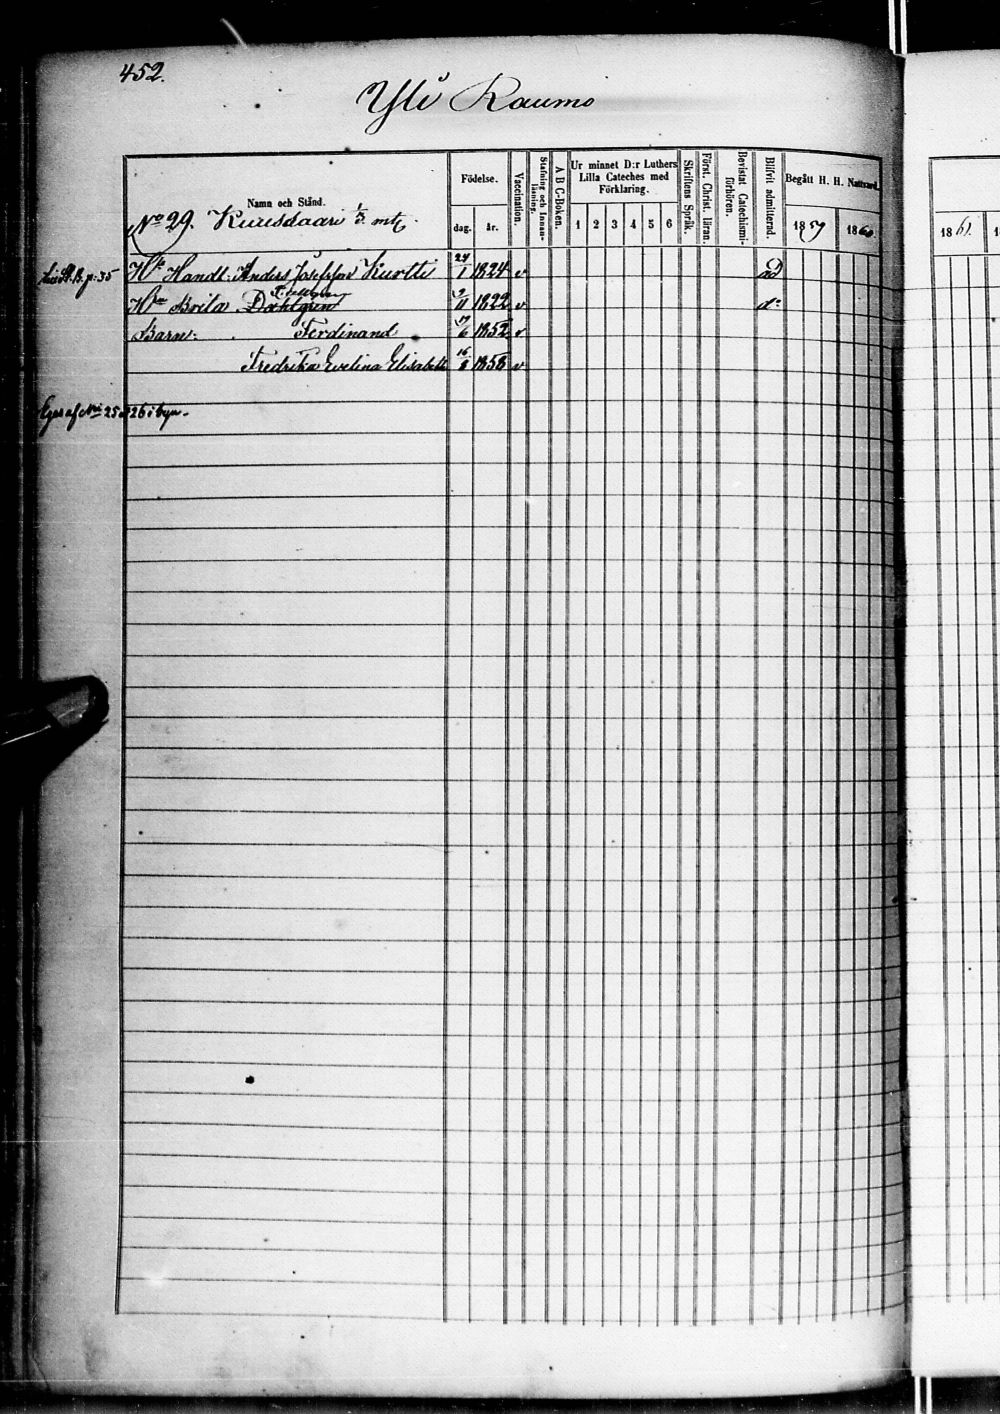 452.
Yli Raumo
Namn och Stånd.
Födelse.
dag. år.
Vaccination.
Stafning och Innanläsning.
A B C-Boken.
Ur minnet D:r Luthers Lilla Cateches med Förklaring.
1 2 3 4 5 6
Skriftens Språk.
Först. Christ. läran.
Bevistat Catechismiförhören.
Blifvit admitterad.
Begått H. H. Nattvard.
1859 1860
1861
No 29. Kuusisaari 1/3 mtl
p. 35 Handl. Anders Josefsson Kurtti 24/1 1824 v
Brita Dahlgren 9/11 1822 v do
Barn: Ferdinand 19/6 1852 v
Fredrika Evelina Elisabeth 16/8 1858 v
Eges af No 25 o 26 i byn.